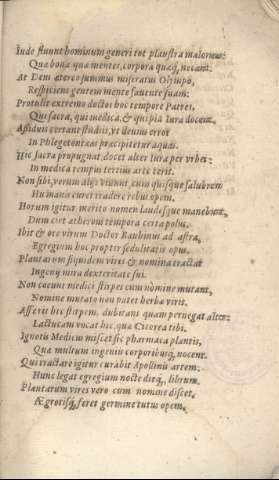 Inde fluunt hominum generi tot plaustra malorum:
Qua bona qua mentes, corpora quaq, necant.
At Deus aterno summus miseratus Olympo,
Respiciens gentem mente favente suam:
Protulit extremo doctos hoc tempore Patres,
Qui sacra, qui medica, & qui pia iura docent.
Assiduis certant studiis, vt deuius error
In Phlegetonteas præcipitetur aquas.
Hic sacra propugnat, docet alter iura per vrbes:
In medica tempus tertius arte terit.
Non sibi, verum aliis viuunt, cum quisque salubrem
Humanis curet tradere rebus opem.
Horum igitur merito nomen laudesque manebunt,
Dum ciet æthereum tempora certa polus.
Ibit & ore virum Doctor Raubinus ad astra,
Egregium hoc propter sedulitatis opus.
Plantarum siquidem vires & nomina tractat
Ingenij mira dexteritate sui.
Non coeunt medici stirpes cum nomine mutant,
Nomine mutato non patet herba virit.
Asserit hic stirpem, dubitans quam pernegat alter:
Lactucam vocat hic, quæ Cicorea tibi.
Ignotis Medicus miscet sic pharmaca plantis,
Quæ multum ingeniis corporibusq, nocent.
Qui tractare igitur curabit Apollinis artem:
Hunc legat egregium nocte dieq,, librum.
Plantarum vires vero cum nomine discet,
Ægrotisq, feret germine tutus opem.